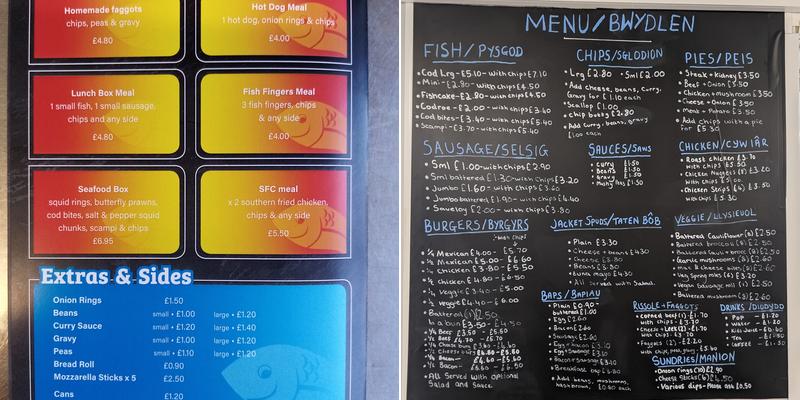 Homemade faggots
chips, peas & gravy
£4.80
Hot Dog Meal
1 hot dog, onion rings & chips
£4.00
Lunch Box Meal
1 small fish, 1 small sausage,
chips and any side
£4.80
Fish Fingers Meal
3 fish fingers, chips
& any side
£4.00
Seafood Box
squid rings, butterfly prawns,
cod bites, salt & pepper squid
chunks, scampi & chips
£6.95
SFC meal
x 2 southern fried chicken,
chips & any side
£5.50
Extras & Sides
Onion Rings £1.50
Beans small • £1.00 large • £1.20
Curry Sauce small • £1.20 large • £1.40
Gravy small • £1.00 large • £1.20
Peas small • £1.10 large • £1.20
Bread Roll £0.90
Mozzarella Sticks x 5 £2.50
Cans £1.20
MENU/BWYDLEN
FISH/PYSGOD
• Cod Lrg - £5.10 - with chips £7.10
• Mini - £2.80 - with chips £4.50
• Fishcake - £2.80 - with chips £4.50
• Codroe - £2.00 - with chips £3.40
• Cod bites - £3.40 - with chips £5.40
• Scampi - £3.70 - with chips £5.40
CHIPS/SGLODION
• Lrg £2.80 • Sml £2.00
• Add cheese, beans, curry,
Gravy for £1.10 each
• Scallop £1.00
• Chip butty £2.80
• Add curry, beans, gravy
£1.00 each
PIES/PEIS
• Steak + kidney £3.50
• Beef + Onion £3.50
• Chicken + mushroom £3.50
• Cheese + Onion £3.50
• Meat + Potato £3.50
• Add chips with a pie
for £5.30
SAUSAGE/SELSIG
• Sml £1.00 - with chips £2.90
• Sml battered £1.30 - with chips £3.20
• Jumbo £1.60 - with chips £3.60
• Jumbo battered £1.90 - with chips £4.40
• Saveloy £2.00 - with chips £3.80
SAUCES/SAWS
• Curry £1.50
• Beans £1.50
• Gravy £1.50
• Mushy Peas £1.50
CHICKEN/CYW IÂR
• Roast chicken £3.70
with chips £5.50
• Chicken Nuggets (8) £3.20
with chips £5.00
• Chicken Strips (4) £3.50
with chips £5.50
BURGERS/BYRGYRS
with chips
¼ Mexican £4.00 - £5.70
½ Mexican £5.00 - £6.60
¼ chicken £3.80 - £5.50
½ chicken £4.80 - £6.50
¼ Veggie £3.40 - £5.00
½ veggie £4.40 - £6.00
Battered (1) £2.50
In a bun £3.50 - £4.50
All Served with Optional
Salad and Sauce
JACKET SPUDS/TATEN BÔB
• Plain £3.30
• Cheese + beans £4.30
• Cheese £3.80
• Beans £3.80
• tuna mayo £4.30
• All Served with Salad.
VEGGIE/LLYSIEUOL
• Battered Cauliflower (8) £2.50
• Battered broccoli (8) £2.50
• Garlic mushrooms (8) £2.60
• mac & cheese bites (8) £2.60
• Veg Spring rolls (6) £3.20
• Vegan Sausage roll (1) £2.50
• Battered mushroom (8) £2.60
BAPS/BAPIAU
• Plain £0.90
buttered £1.00
• Egg £2.60
• Bacon £2.60
• Sausage £2.60
• Egg + bacon £3.10
• Egg + Sausage £3.10
• Bacon + Sausage £3.10
• Add beans, mushrooms,
hashbrown, £0.80 each
RISSOLE + FAGGOTS
• Corned beef (1) - £1.70
with chips - £3.70
• Cheese + Leek (2) - £1.70
with chips - £3.70
• Faggots (2) - £2.20
with chips, peas, gravy - £5.60
DRINKS/DIODYDD
• Pop - £1.20
• Water - £1.20
• Kids Juice - £0.60
• Tea - £1.50
• Coffee - £1.50
SUNDRIES/MANION
• Onion rings (10) £2.90
• Cheese Sticks (6) £4.50
• Various dips - Please ask £0.50